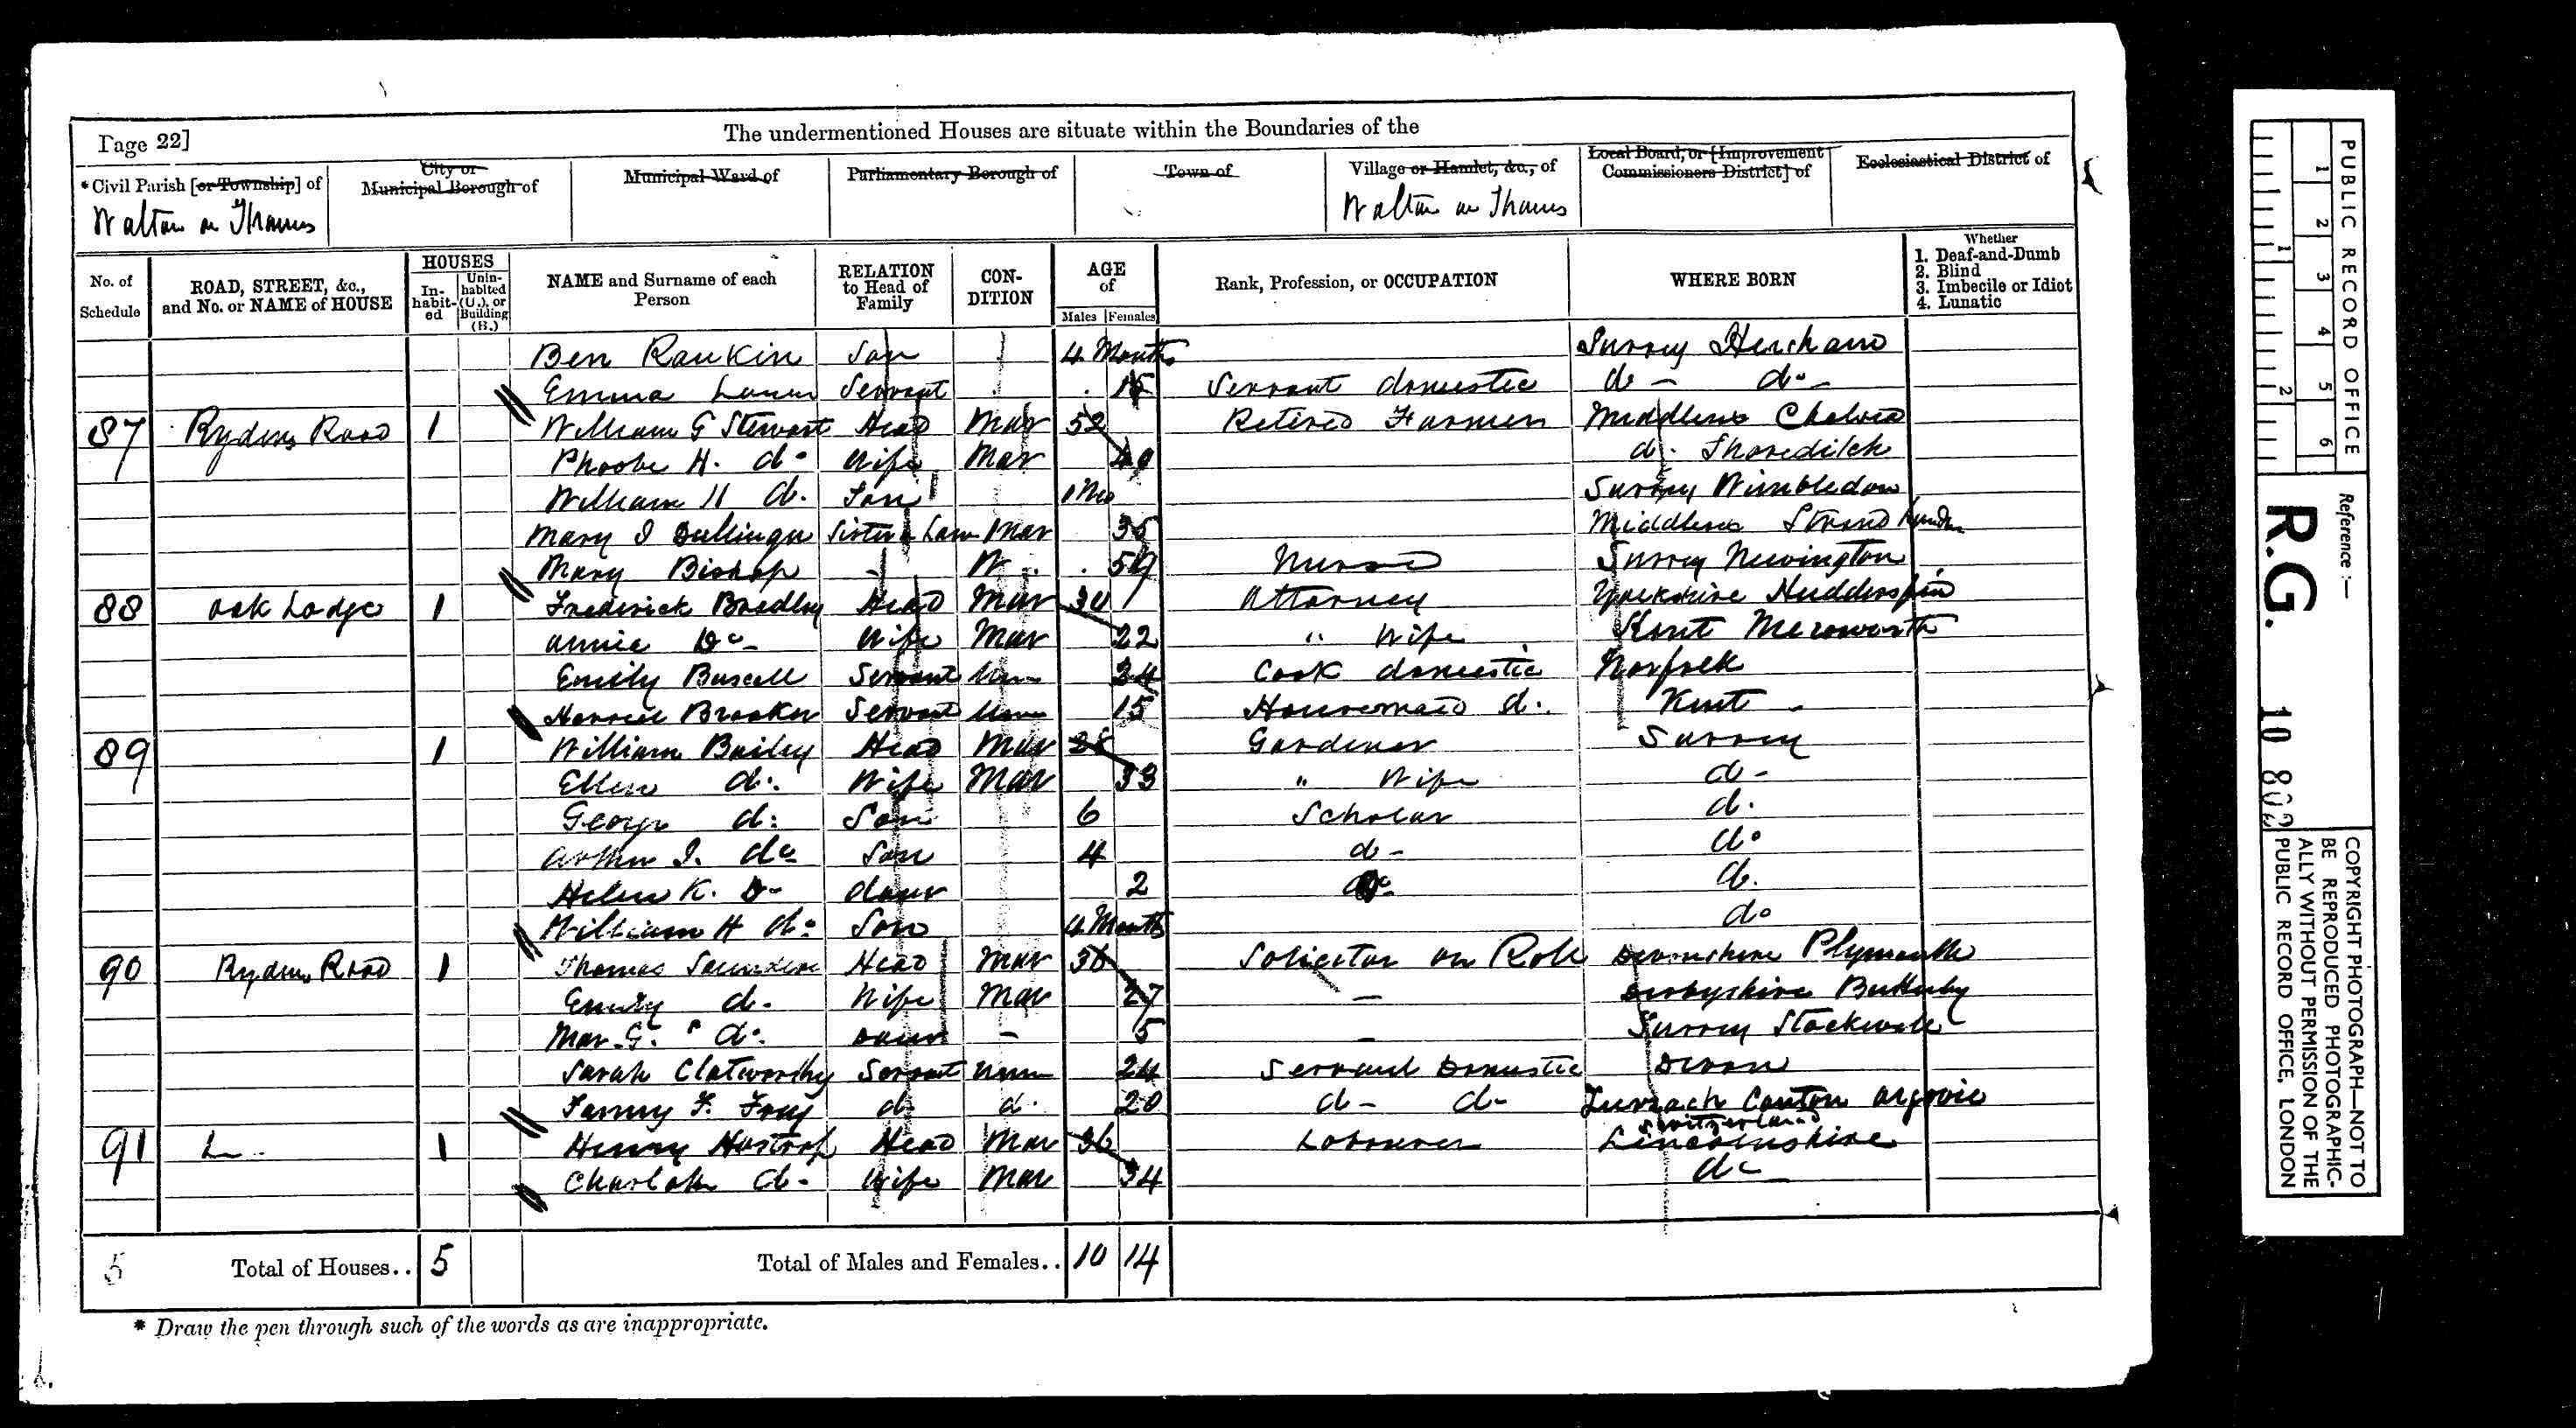 Page 22]
The undermentioned Houses are situate within the Boundaries of the
*Civil Parish [or Township] of
City or Municipal Borough of
Municipal Ward of
Parliamentary Borough of
Town of
Village or Hamlet, &c., of
Local Board, or [Improvement Commissioners District] of
Ecclesiastical District of
Walton on Thames
Walton on Thames
No. of Schedule
ROAD, STREET, &c., and No. or NAME of HOUSE
HOUSES
In-habit-ed
Unin-habited (U.), or Building (B.)
NAME and Surname of each Person
RELATION to Head of Family
CON-DITION
AGE of
Males
Females
Rank, Profession, or OCCUPATION
WHERE BORN
Whether
1. Deaf-and-Dumb
2. Blind
3. Imbecile or Idiot
4. Lunatic
Ben Rankin Son 4 Months Surrey Hersham
Emma Servant 15 Servant domestic do - do -
87 Rydens Road 1 William G Stewart Head Mar 52 Retired Farmer Middlesex Chelsea
Phoebe H. do Wife Mar 40 do. Shoreditch
William H do. Son 1 Mo Surrey Wimbledon
Mary I Sister in Law Mar 35 Middlesex Strand London
Mary Bishop - W. 59 Nurse Surrey Newington
88 Oak Lodge 1 Frederick Bradley Head Mar 30 Attorney Yorkshire Huddersfield
Annie Do - Wife Mar 22 " Wife Kent Mereworth
Emily Servant Unm 24 Cook domestic Norfolk
Harriet Brooker Servant Unm 15 Housemaid d. Kent -
89 1 William Bailey Head Mar 28 Gardener Surrey
Ellen do. Wife Mar 33 " Wife do -
George do. Son 6 Scholar do.
Arthur I. do Son 4 do - do
Helen K. Do - daur 2 do do.
William H do. Son 4 Months do
90 Rydens Road 1 Thomas Saunders Head Mar 36 Solicitor on Roll Devonshire Plymouth
Emily do. Wife Mar 27 - Derbyshire Butterley
Mar. G. do. Daur - 5 - Surrey Stockwell
Sarah Clatworthy Servant Unm 24 Servant Domestic Devon
Fanny F. Frey do do. 20 do - do - Zurzach Canton Argovie
Switzerland
91 1 Henry Head Mar 36 Labourer Lincolnshire
Charlotte do - Wife Mar 34 do
5 Total of Houses.. 5 Total of Males and Females.. 10 14
* Draw the pen through such of the words as are inappropriate.
PUBLIC RECORD OFFICE
1 2 3 4 5 6
1 2
Reference :—
R.G. 10 802
COPYRIGHT PHOTOGRAPH—NOT TO
BE REPRODUCED PHOTOGRAPHIC-
ALLY WITHOUT PERMISSION OF THE
PUBLIC RECORD OFFICE, LONDON